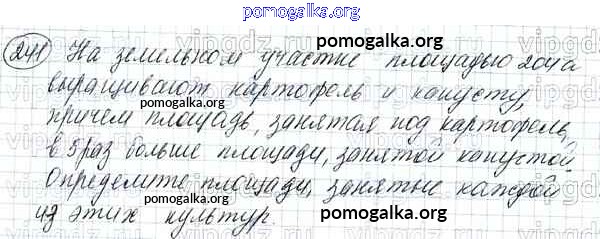 pomogalka.org
241 На земельном участке площадью 204 а pomogalka.org
выращивают картофель и капусту,
pomogalka.org pomogalka.org
причем площадь, занятая под картофель,
в 5 раз больше площади, занятой капустой.
Определите площади, занятые каждой
из этих культур.
pomogalka.org pomogalka.org